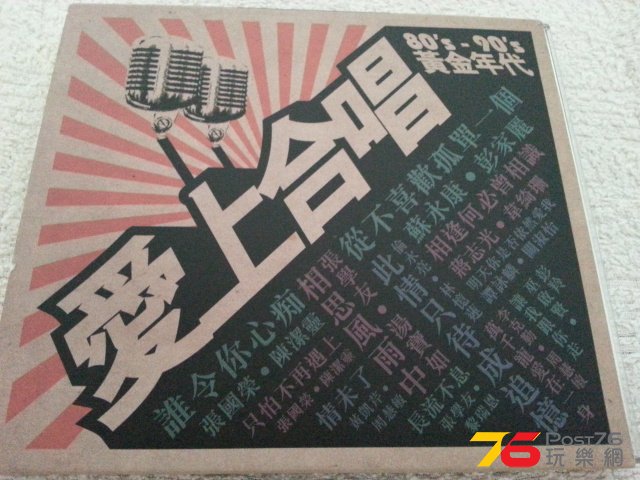 80's - 90's
黃金年代
愛上合唱
誰令你心痴
張國榮・陳潔靈
只怕不再遇上
張國榮・陳潔靈
相思風雨中
張學友・湯寶如
情未了
從不喜歡孤單一個
蘇永康・彭家麗
此情只待成追憶
倫永亮・林憶蓮
相逢何必曾相識
蔣志光・韋綺珊
明天你是否依然愛我
長流不息
張學友・黎瑞恩
76
POST76
玩樂網